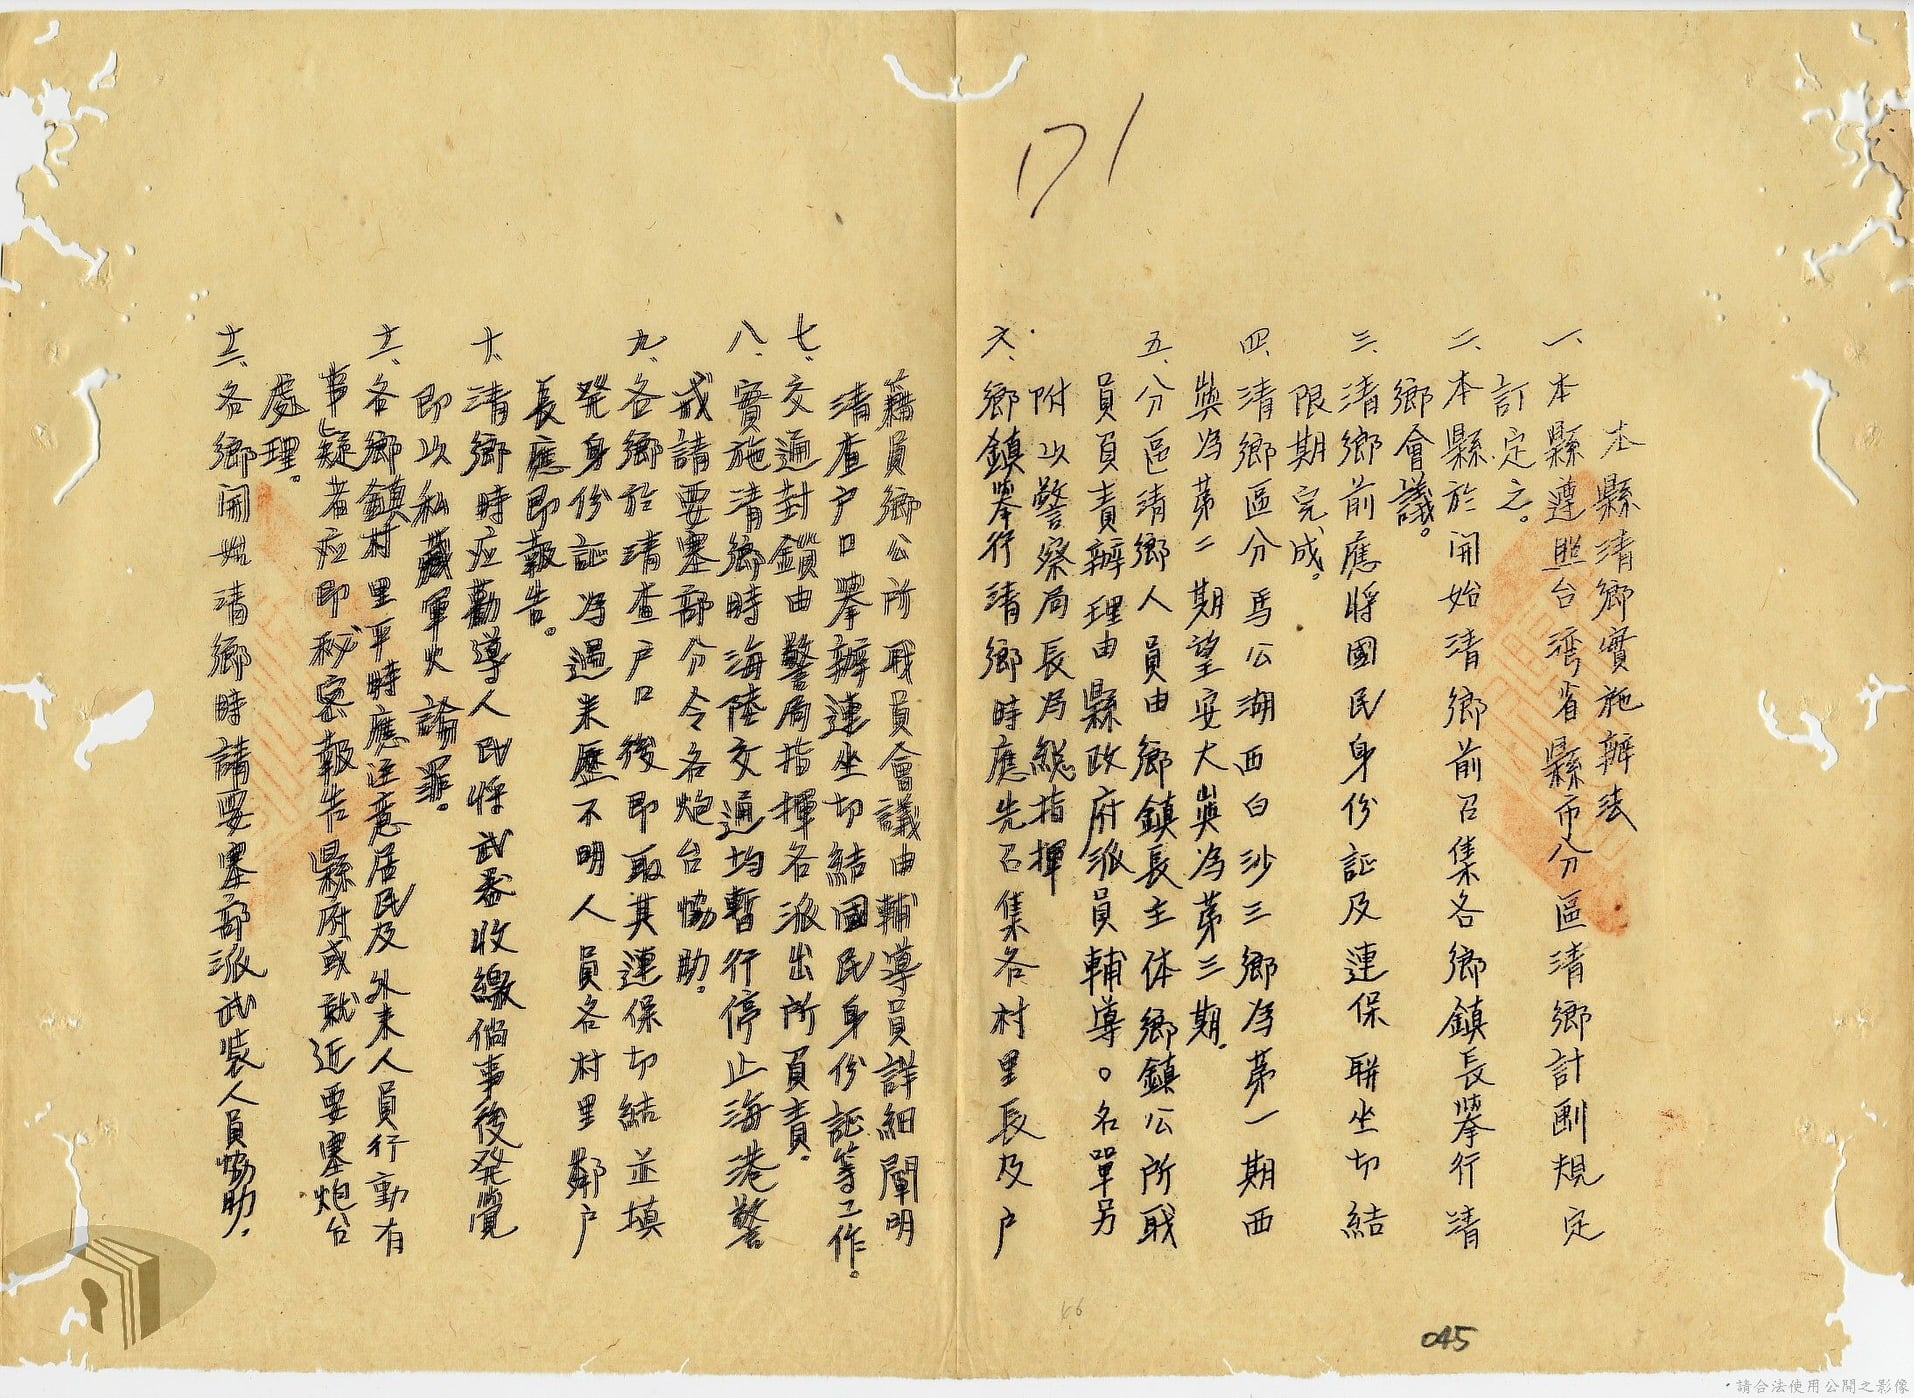 171
本縣清鄉實施辦法
一、本縣遵照台灣省縣市分區清鄉計劃規定
訂定之。
二、本縣於開始清鄉前召集各鄉鎮長舉行清
鄉會議。
三、清鄉前應將國民身份証及連保聯坐切結
限期完成。
四、清鄉區分馬公湖西白沙三鄉為第一期西
嶼為第二期望安大嶼為第三期。
五、分區清鄉人員由鄉鎮長主体鄉鎮公所職
員員責辦理由縣政府派員輔導。名單另
附以警察局長為總指揮
六、鄉鎮舉行清鄉時應先召集各村里長及戶
籍員鄉公所職員會議由輔導員詳細闡明
清查戶口舉辦連坐切結國民身份証等工作。
七、交通封鎖由警局指揮各派出所員責。
八、實施清鄉時海陸交通均暫行停止海港警
戒請要塞部分令各炮台協助。
九、各鄉於清查戶口後即取其連保切結並填
発身份証為過來歷不明人員各村里鄰戶
長應即報告。
十、清鄉時应勸導人民將武器收繳倘事後発覚
即以私藏軍火論罪。
十一、各鄉鎮村里平時應注意居民及外來人員行動有
事疑者应即秘密報告縣府或就近要塞炮台
處理。
十二、各鄉開始清鄉時請要塞部派武裝人員協助。
66
045
請合法使用公開之影像